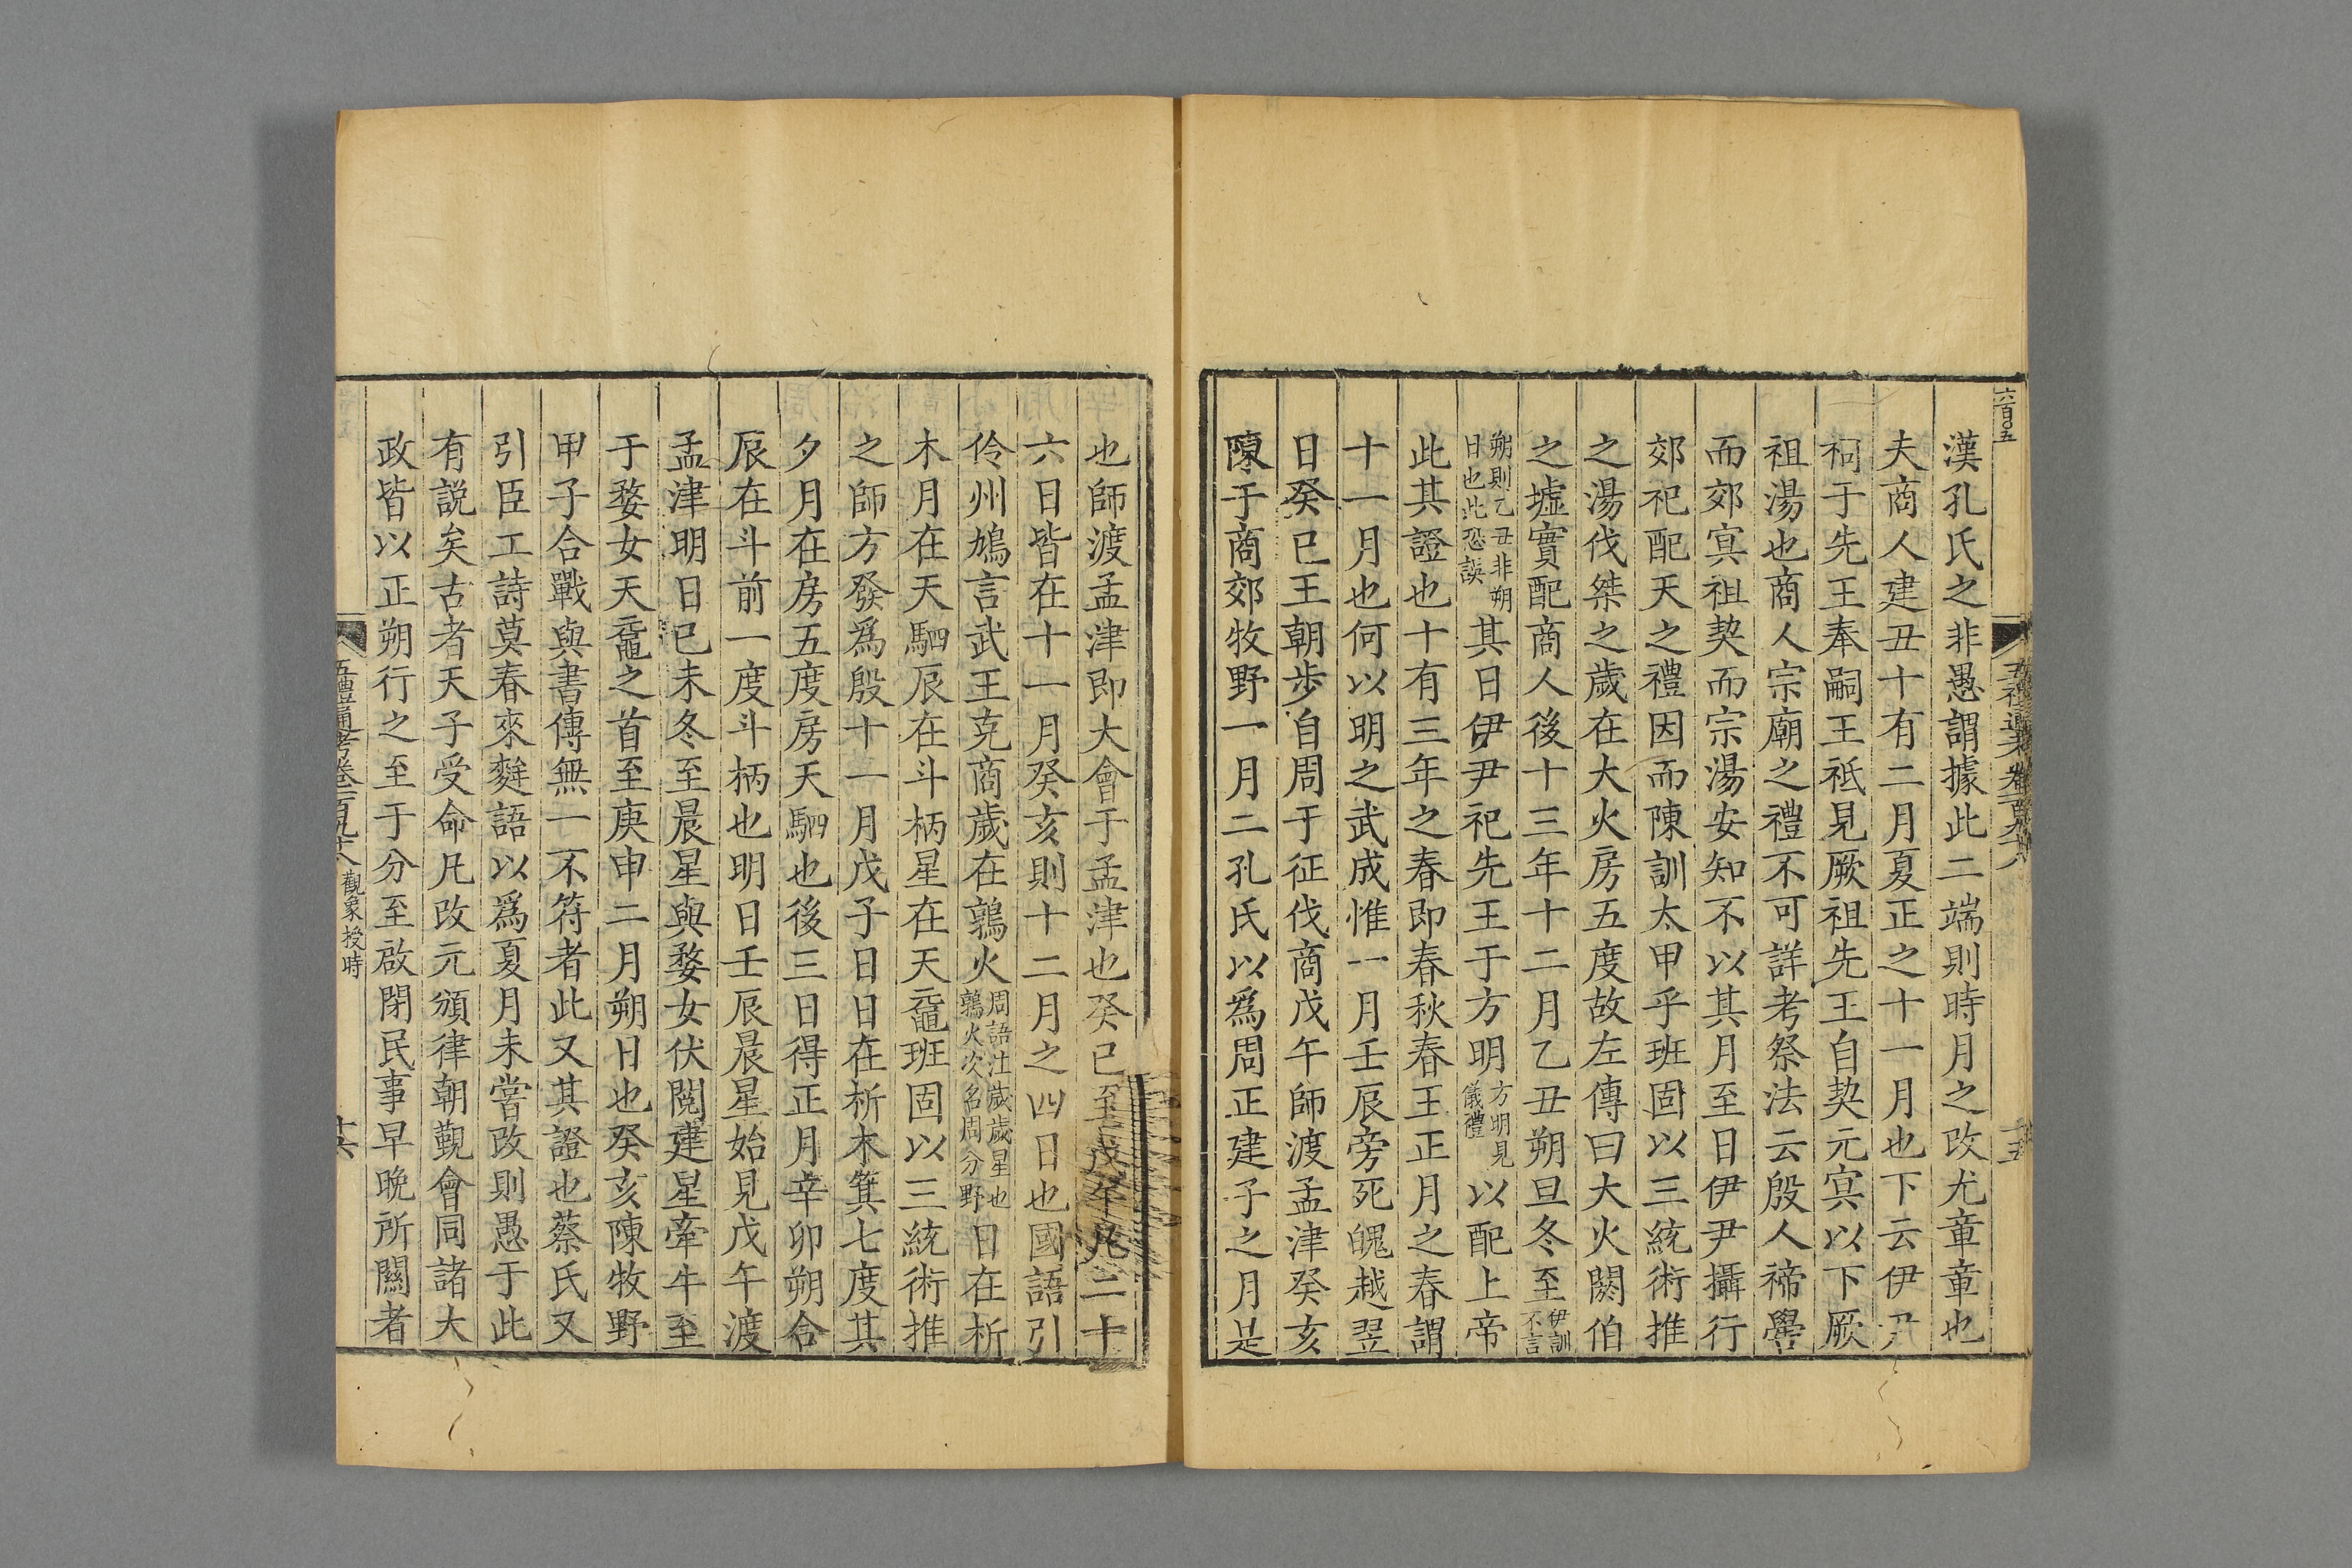 六百五
漢孔氏之非愚謂據此二端則時月之改尤章章也
夫商人建丑十有二月夏正之十一月也下云伊尹
祠于先王奉嗣王祗見厥祖先王自契元冥以下厥
祖湯也商人宗廟之禮不可詳考祭法云殷人禘嚳
而郊冥祖契而宗湯安知不以其月至日伊尹攝行
郊祀配天之禮因而陳訓太甲乎班固以三統術推
之湯伐桀之歲在大火房五度故左傳曰大火閼伯
之墟實配商人後十三年十二月乙丑朔旦冬至伊訓不言
朔則乙丑非朔日也此恐誤其日伊尹祀先王于方明方明見儀禮以配上帝
此其證也十有三年之春即春秋春王正月之春謂
十一月也何以明之武成惟一月壬辰旁死魄越翌
日癸巳王朝步自周于征伐商戊午師渡孟津癸亥
陳于商郊牧野一月二孔氏以爲周正建子之月是
也師渡孟津即大會于孟津也癸巳至戊午凡二十
六日皆在十一月癸亥則十二月之四日也國語引
伶州鳩言武王克商歲在鶉火周語注歲歲星也鶉火次名周分野日在析
木月在天駟辰在斗柄星在天黿班固以三統術推
之師方發爲殷十一月戊子日日在析木箕七度其
夕月在房五度房天駟也後三日得正月辛卯朔合
辰在斗前一度斗柄也明日壬辰晨星始見戊午渡
孟津明日己未冬至晨星與婺女伏閱建星牽牛至
于婺女天黿之首至庚申二月朔日也癸亥陳牧野
甲子合戰與書傳無一不符者此又其證也蔡氏又
引臣工詩莫春來麰語以爲夏月未嘗改則愚于此
有說矣古者天子受命凡改元頒律朝覲會同諸大
政皆以正朔行之至于分至啟閉民事早晚所關者
五禮通考卷一百九十八 觀象授時
十六